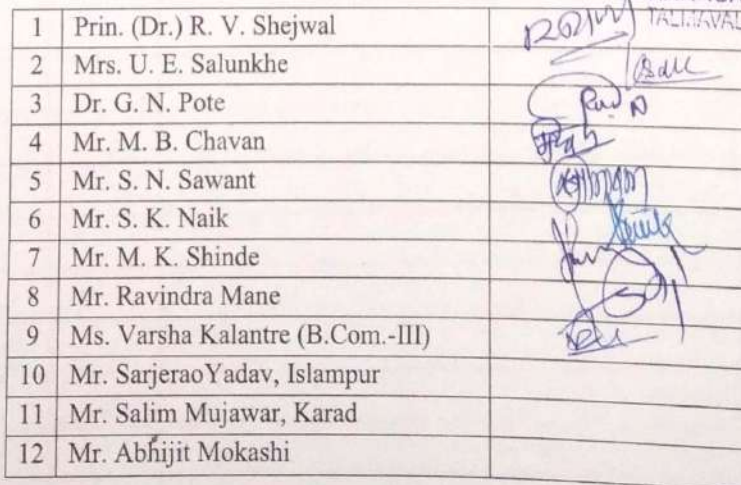 TALMAVAL
1 Prin. (Dr.) R. V. Shejwal
2 Mrs. U. E. Salunkhe
3 Dr. G. N. Pote
4 Mr. M. B. Chavan
5 Mr. S. N. Sawant
6 Mr. S. K. Naik
7 Mr. M. K. Shinde
8 Mr. Ravindra Mane
9 Ms. Varsha Kalantre (B.Com.-III)
10 Mr. SarjeraoYadav, Islampur
11 Mr. Salim Mujawar, Karad
12 Mr. Abhijit Mokashi